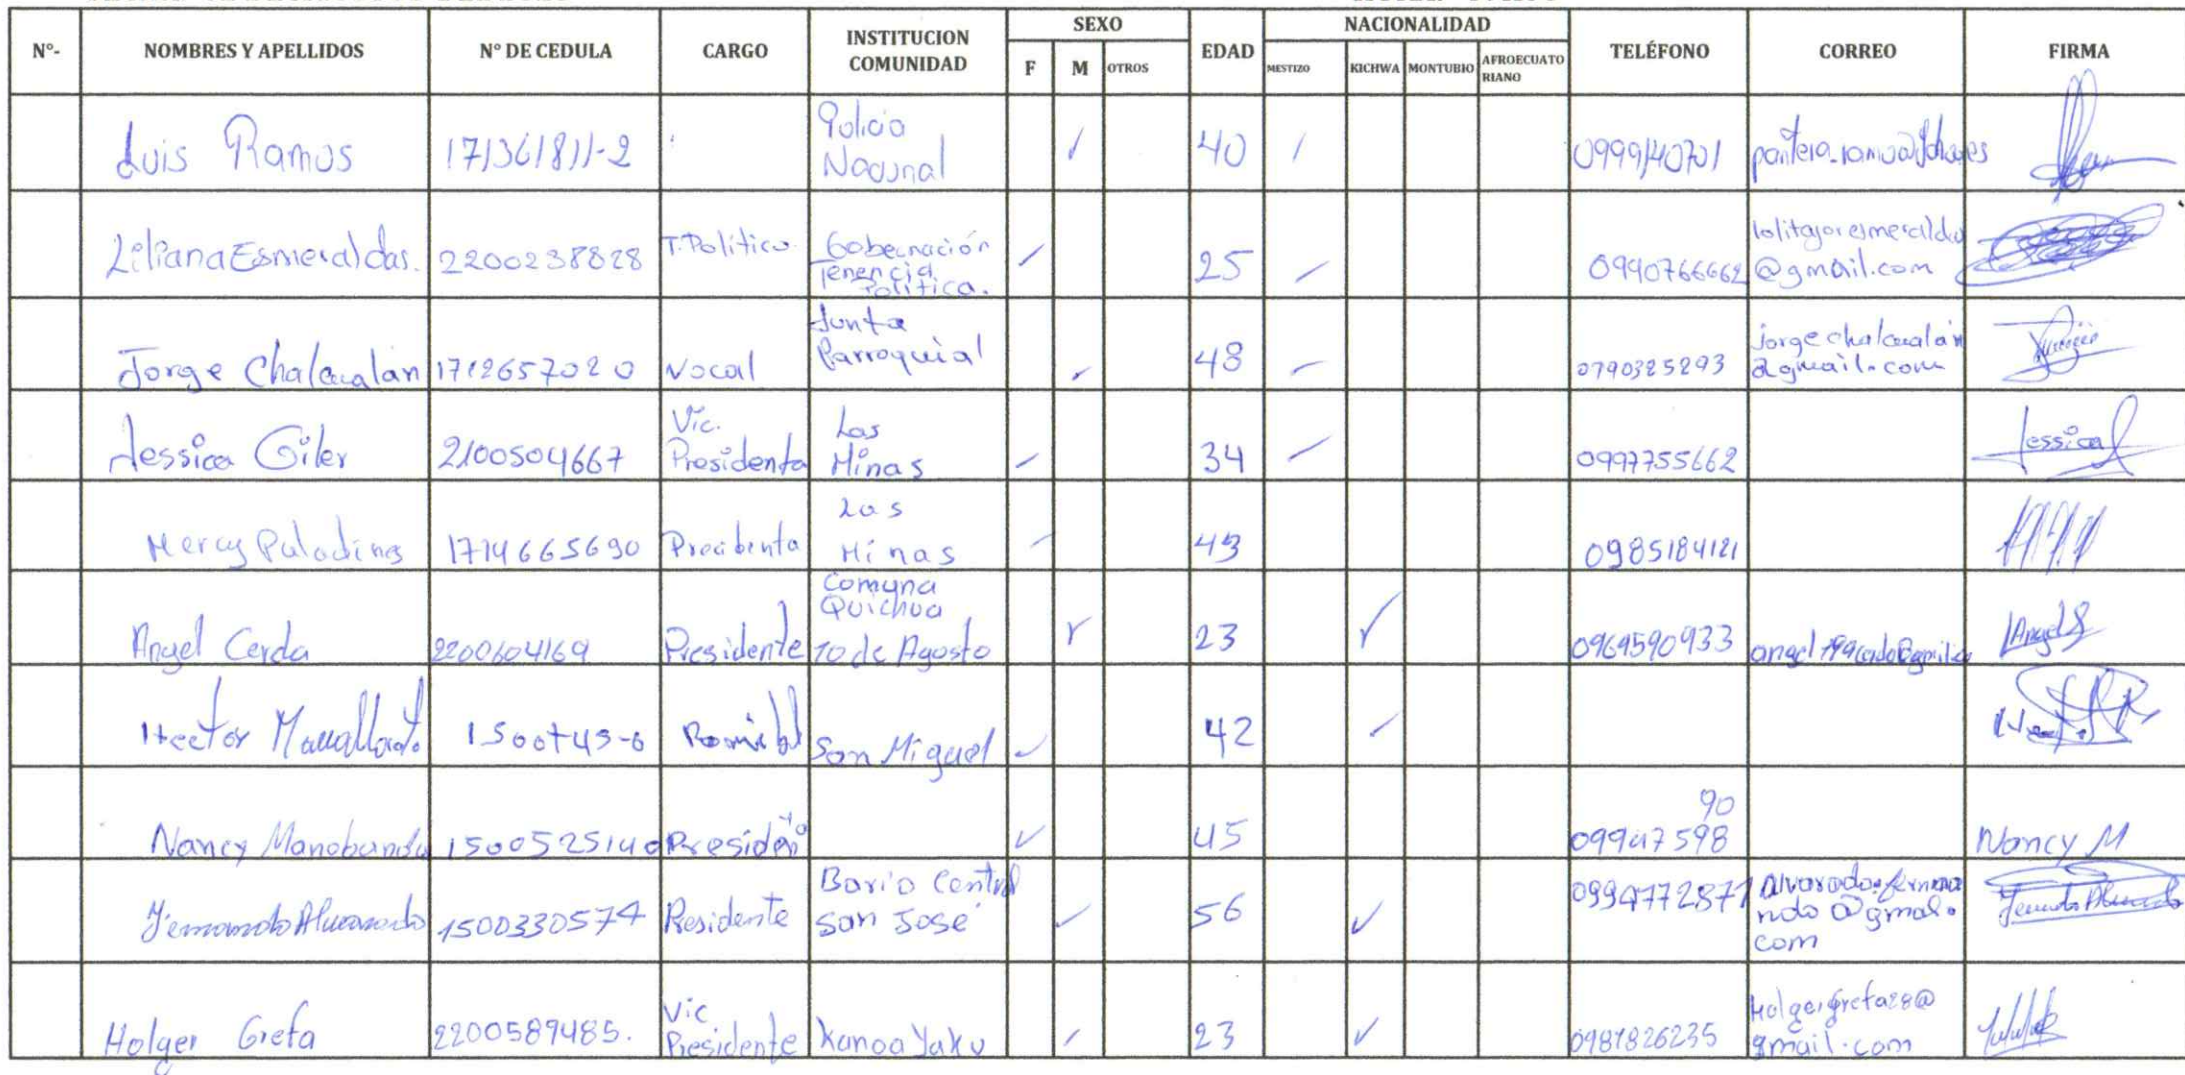 SEXO NACIONALIDAD
N°- NOMBRES Y APELLIDOS N° DE CEDULA CARGO INSTITUCION COMUNIDAD F M OTROS EDAD MESTIZO KICHWA MONTUBIO AFROECUATO RIANO TELÉFONO CORREO FIRMA
Luis Ramos 171361811-2 Policia Nacional 40 0999140701
Liliana Esmeraldas. 2200238828 T.Político Gobernación Tenencia Política. 25 0990766662 @gmail.com
Jorge Chalacualan 1712657020 Vocal Junta Parroquial 48 0790325293 jorge chalacualan @gmail.com
Jessica Giler 2100504667 Vic. Presidenta Las Minas 34 0997755662 Jessica
Mercy Paladines 1714665690 Precidenta Las Minas 43 0985184121
Angel Cerda 2200604169 Presidente Comuna Quichua 10 de Agosto 23 0969590933 Angel
Hector San Miguel 42
Nancy Manobanda 1500525140 Presidenta 45 09947598 90 Nancy M
Fernando Alvarado 1500330574 Residente Bario Central San José 56 0994772871 alvarado.ferna ndo @gmal. com
Holger Grefa 2200589485. Vic Presidente Kanoa Yaku 23 0981826235 Holgergrefa28@ gmail.com